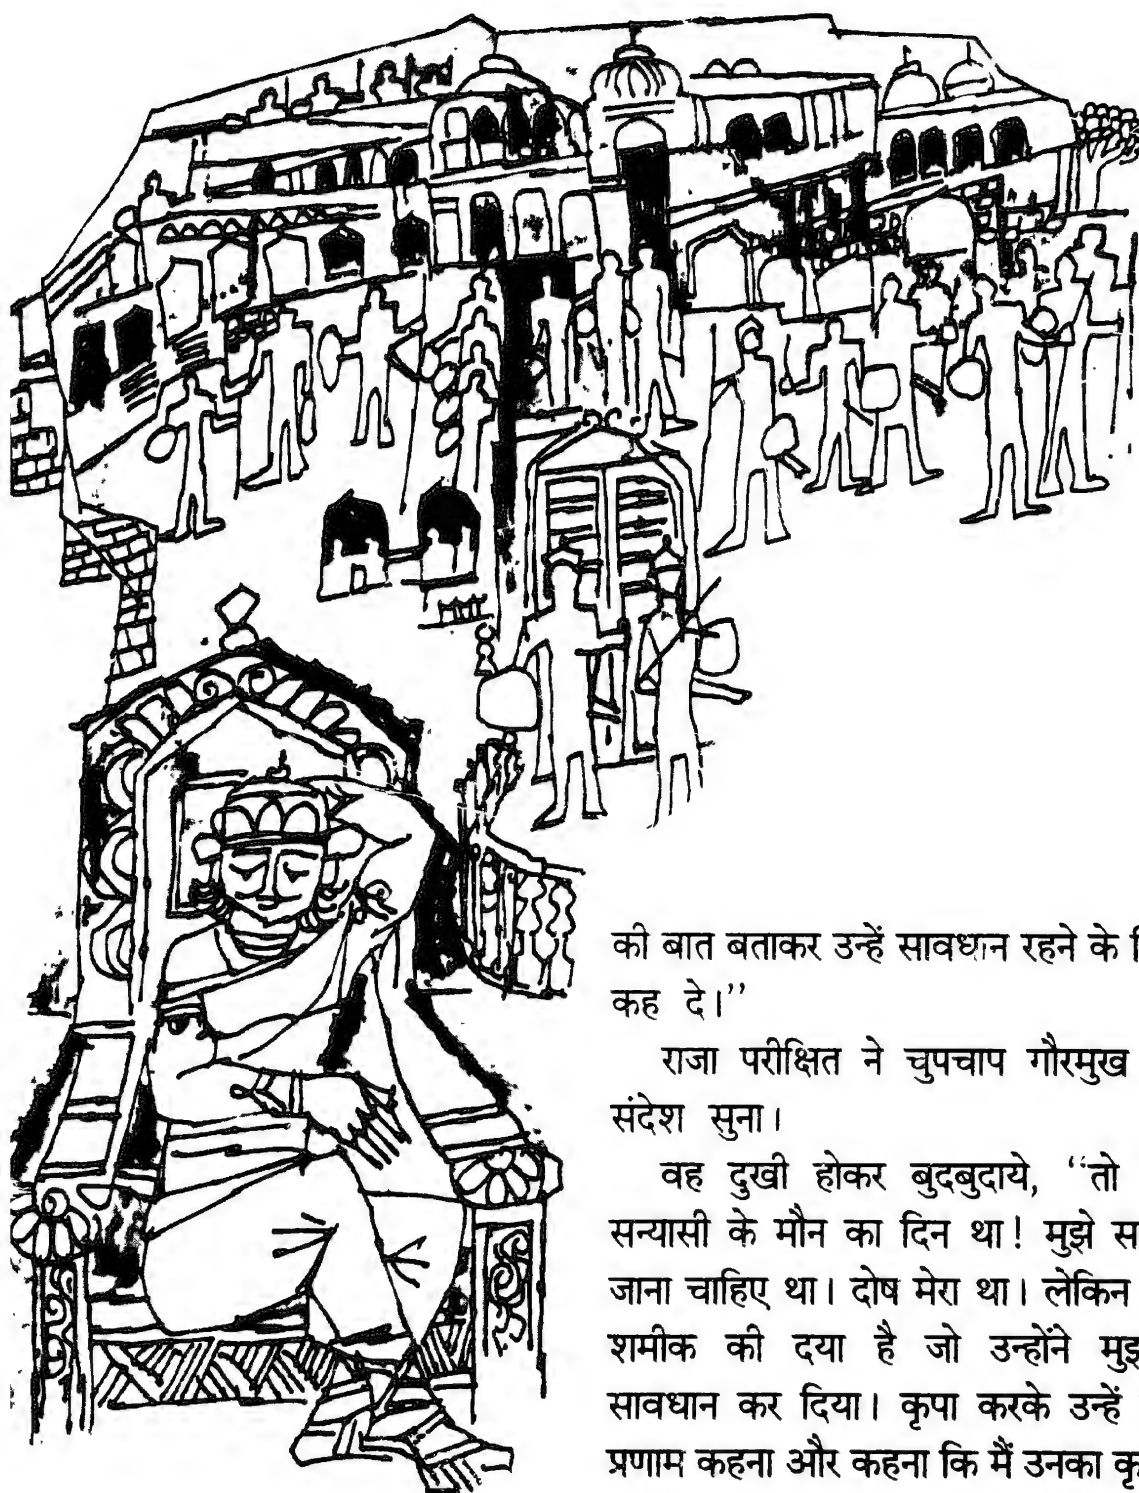 की बात बताकर उन्हें सावधान रहने के
कह दे।”
राजा परीक्षित ने चुपचाप गौरमुख
संदेश सुना।
वह दुखी होकर बुदबुदाये, “तो
सन्यासी के मौन का दिन था! मुझे
जाना चाहिए था। दोष मेरा था। लेकिन
शमीक की दया है जो उन्होंने
सावधान कर दिया। कृपा करके उन्हें
प्रणाम कहना और कहना कि मैं उनका